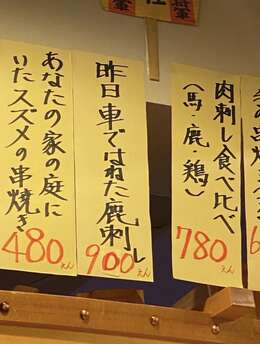 肉刺し食べ比べ
（馬・鹿・鶏）
780えん
昨日車ではねた鹿刺し
900えん
あなたの家の庭に
いたスズメの串焼き
480えん